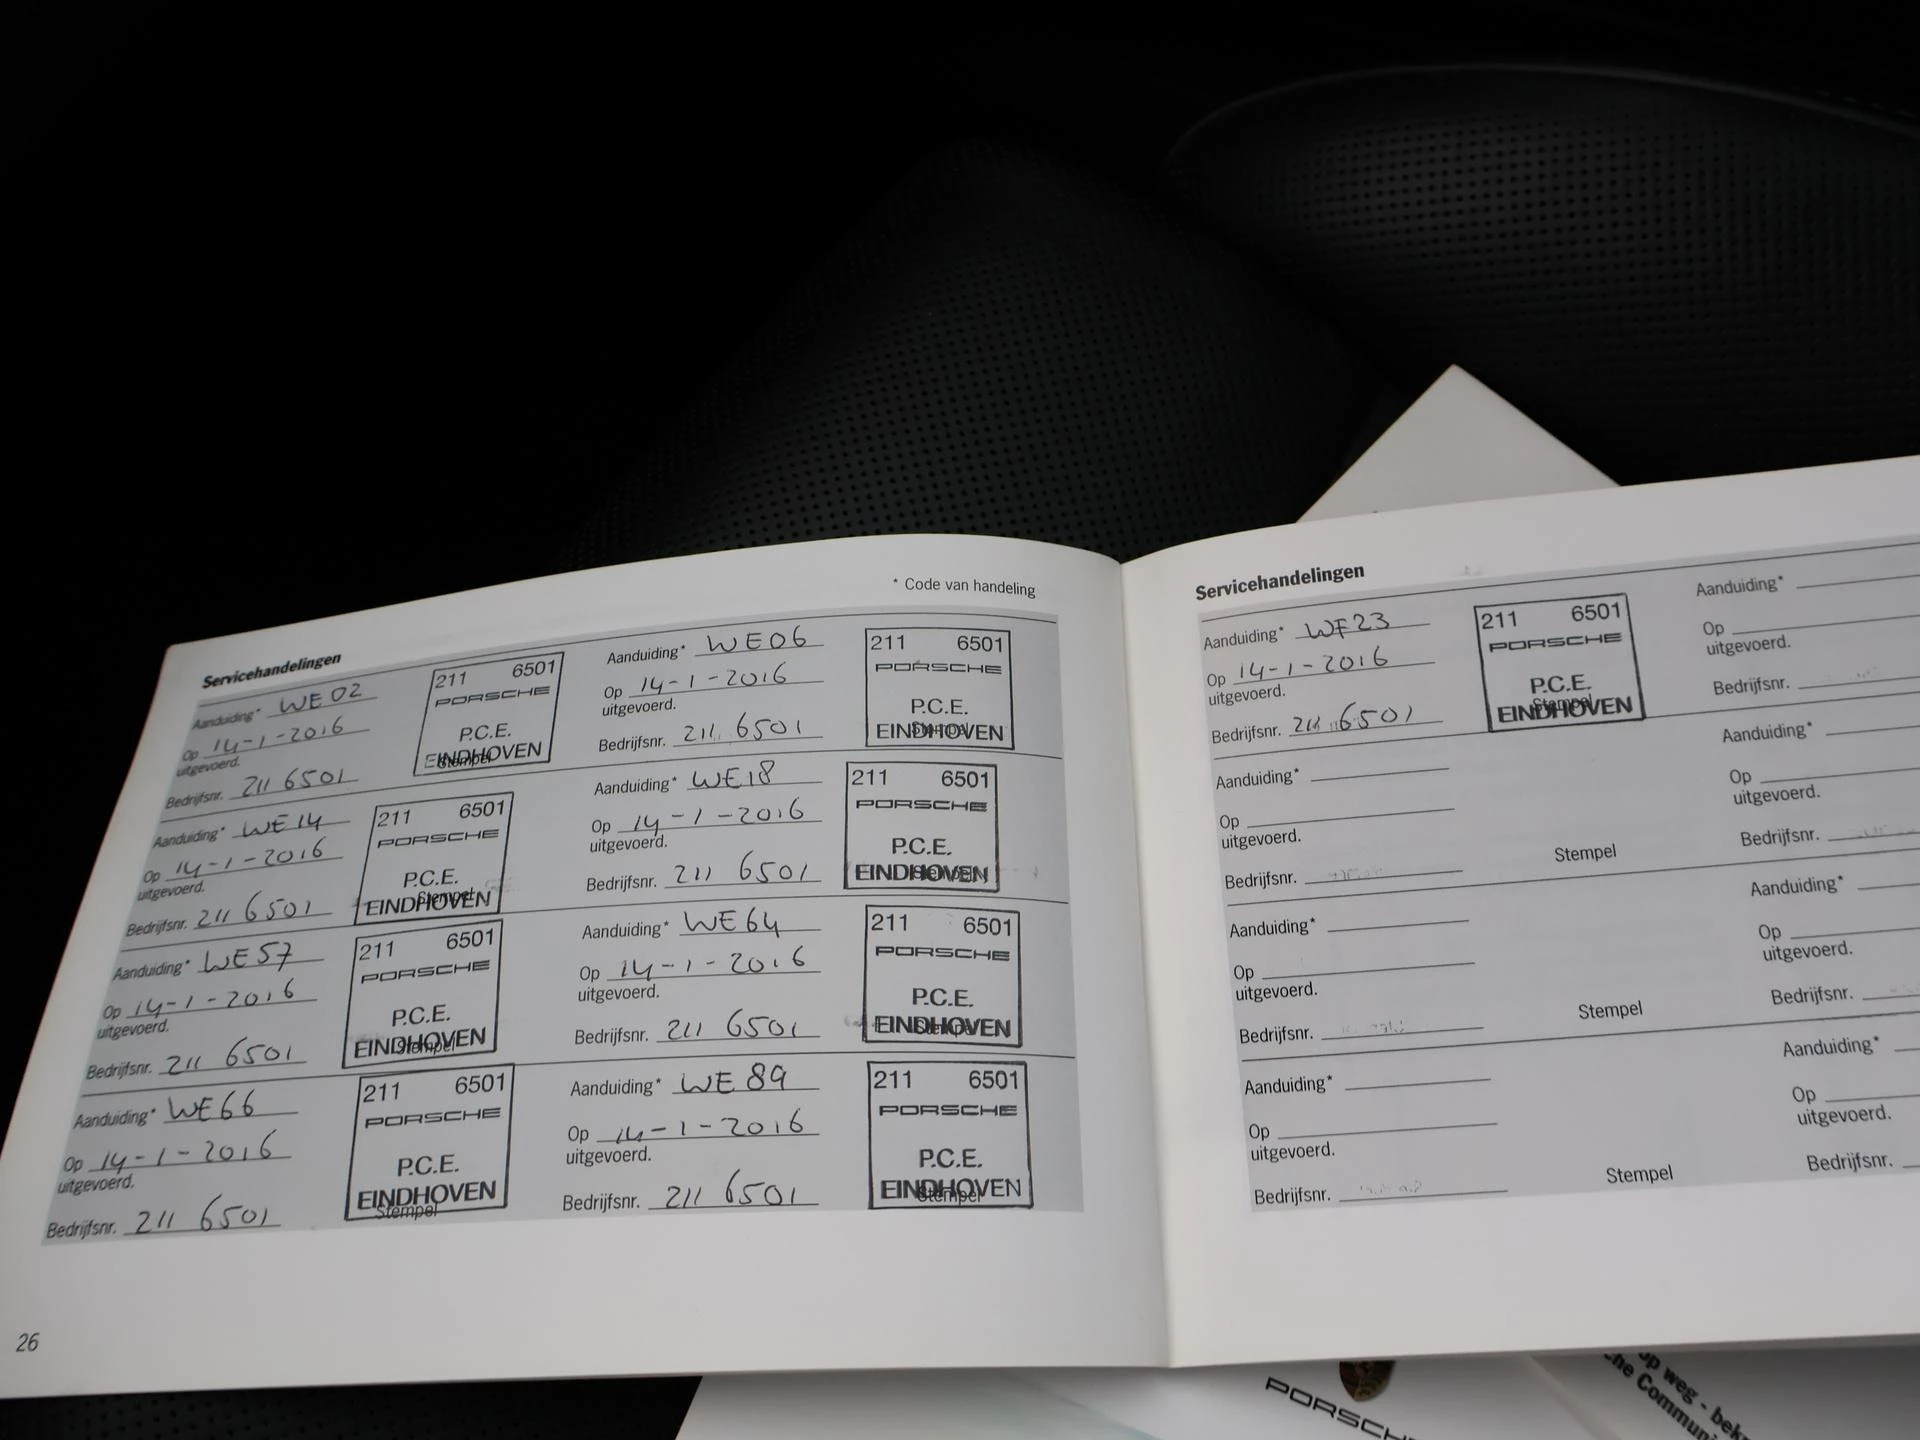 * Code van handeling
Servicehandelingen
Aanduiding* WE02
Op 14-1-2016
uitgevoerd.
Bedrijfsnr. 211 6501
211 6501
PORSCHE
P.C.E.
EINDHOVEN
Stempel
Aanduiding* WE06
Op 14-1-2016
uitgevoerd.
Bedrijfsnr. 211 6501
211 6501
PORSCHE
P.C.E.
EINDHOVEN
Stempel
Aanduiding* WE14
Op 14-1-2016
uitgevoerd.
Bedrijfsnr. 211 6501
211 6501
PORSCHE
P.C.E.
Stempel
EINDHOVEN
Aanduiding* WE18
Op 14-1-2016
uitgevoerd.
Bedrijfsnr. 211 6501
211 6501
PORSCHE
P.C.E.
EINDHOVEN
Stempel
Aanduiding* WE57
Op 14-1-2016
uitgevoerd.
Bedrijfsnr. 211 6501
211 6501
PORSCHE
P.C.E.
EINDHOVEN
Stempel
Aanduiding* WE64
Op 14-1-2016
uitgevoerd.
Bedrijfsnr. 211 6501
211 6501
PORSCHE
P.C.E.
EINDHOVEN
Stempel
Aanduiding* WE66
Op 14-1-2016
uitgevoerd.
Bedrijfsnr. 211 6501
211 6501
PORSCHE
P.C.E.
EINDHOVEN
Stempel
Aanduiding* WE89
Op 14-1-2016
uitgevoerd.
Bedrijfsnr. 211 6501
211 6501
PORSCHE
P.C.E.
EINDHOVEN
Stempel
26
Servicehandelingen
Aanduiding* WF23
Op 14-1-2016
uitgevoerd.
Bedrijfsnr. 211 6501
211 6501
PORSCHE
P.C.E.
Stempel
EINDHOVEN
Aanduiding*
Op
uitgevoerd.
Bedrijfsnr.
Aanduiding*
Op
uitgevoerd.
Bedrijfsnr.
Stempel
Aanduiding*
Op
uitgevoerd.
Bedrijfsnr.
Aanduiding*
Op
uitgevoerd.
Bedrijfsnr.
Stempel
Aanduiding*
Op
uitgevoerd.
Bedrijfsnr.
Aanduiding*
Op
uitgevoerd.
Bedrijfsnr.
Stempel
Aanduiding*
Op
uitgevoerd.
Bedrijfsnr.
PORSCHE
op weg -